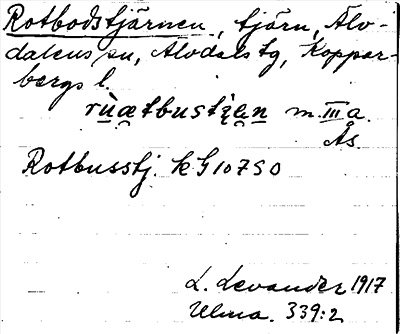 Rotbodstjärnen, tjärn, Älv-
dalens sn, Älvdals tg, Koppar-
bergs l.
rùætbustįęn m. III a.
Ås.
Rotbusstj. k G 10750
L. Levander 1917
Ulma. 339:2